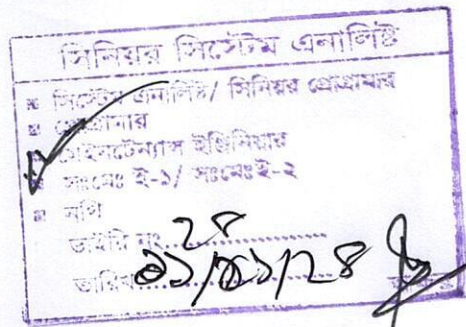 সিনিয়র সিস্টেম এনালিষ্ট
সিস্টেম এনালিষ্ট/ সিনিয়র প্রোগ্রামার
প্রোগ্রামার
মেইনটেন্যান্স ইঞ্জিনিয়ার
সঃমেঃ ই-১/ সঃমেঃই-২
নথি
ডাইরি নং..................
তারিখ